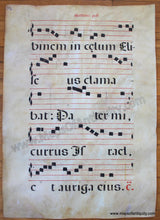 binem in celum Eli
seus clama
bat: Pater mi,
currus Is rael,
et auriga eius. €
www.mapsofantiquity.com